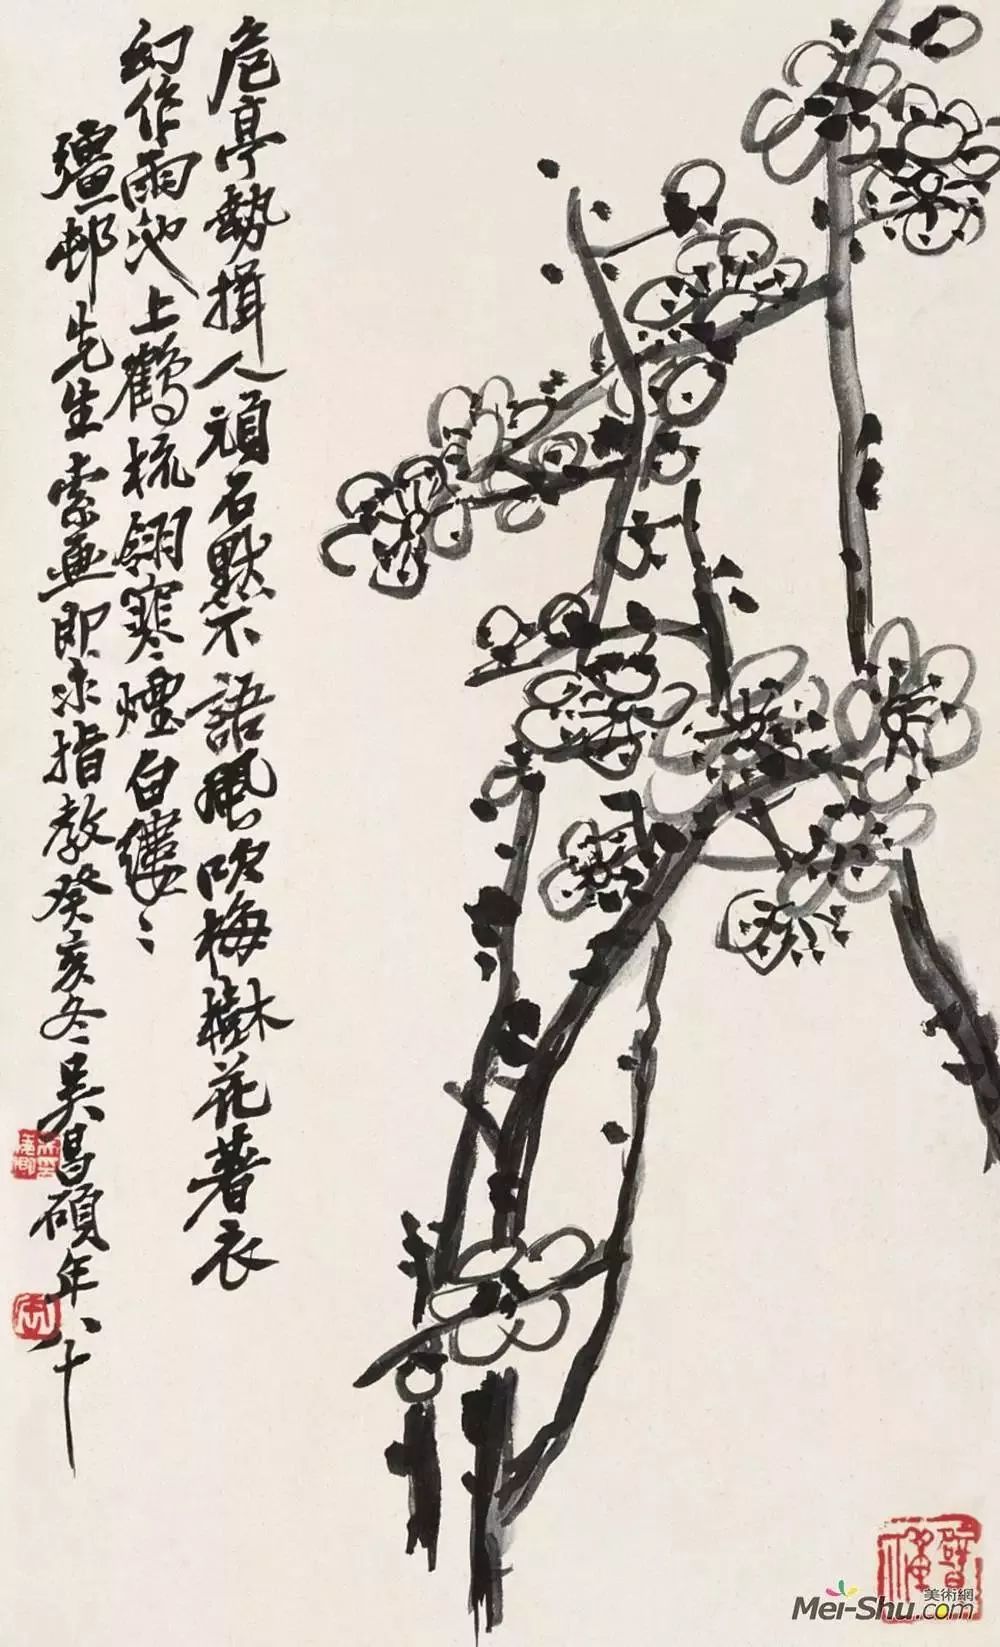 危亭勢揖人頑石默不語風吹梅樹花著衣
幻作雨池上鶴梳翎寒煙白縷〻
彊邨先生索画即求指教癸亥冬吳昌碩年八十
美術網
Mei-Shu.com